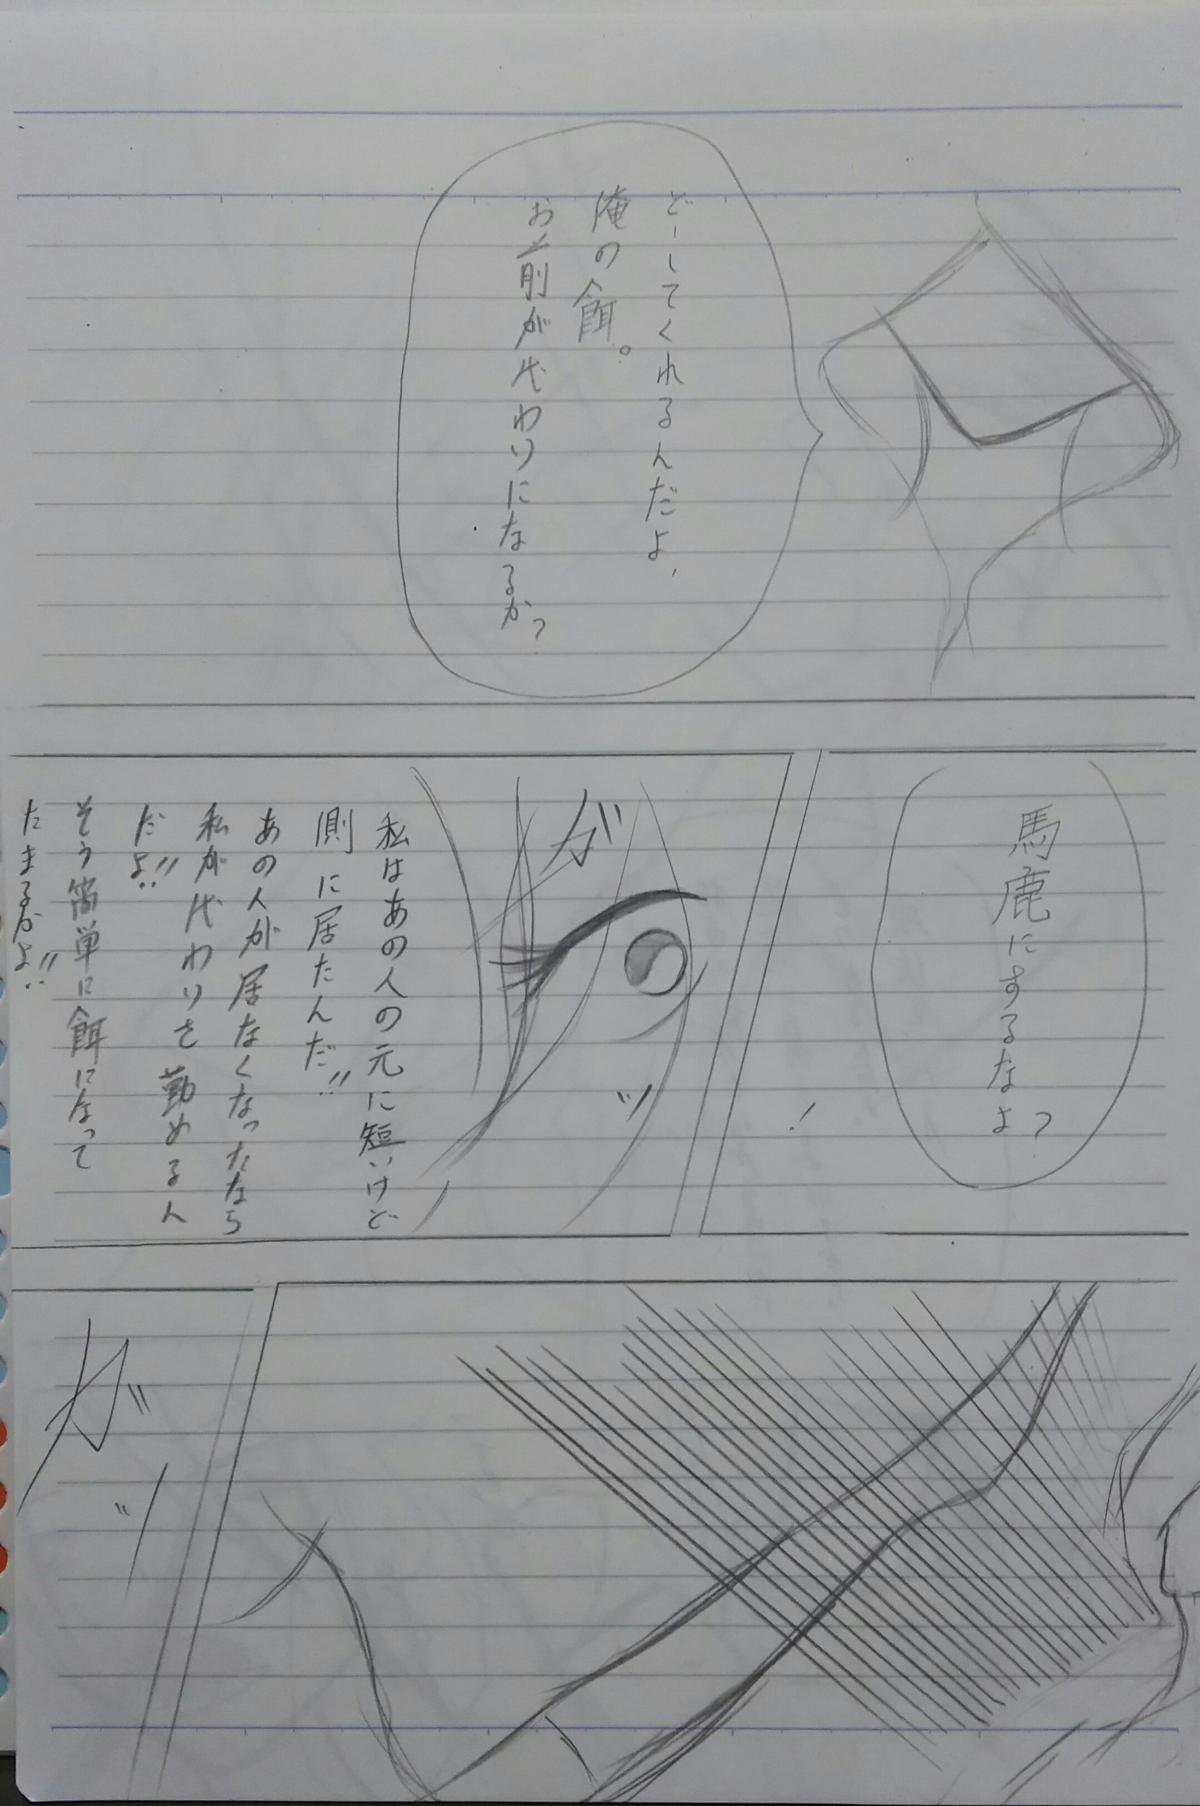 どーしてくれるんだよ、
俺の餌。
お前が代わりになるか?
馬鹿にするなよ?
!
ガ
ッ
私はあの人の元に短いけど
側に居たんだ!!
あの人が居なくなったなら
私が代わりを勤めるん
だよ!!
そう簡単に餌になって
たまるかよ!!
ガ
ッ